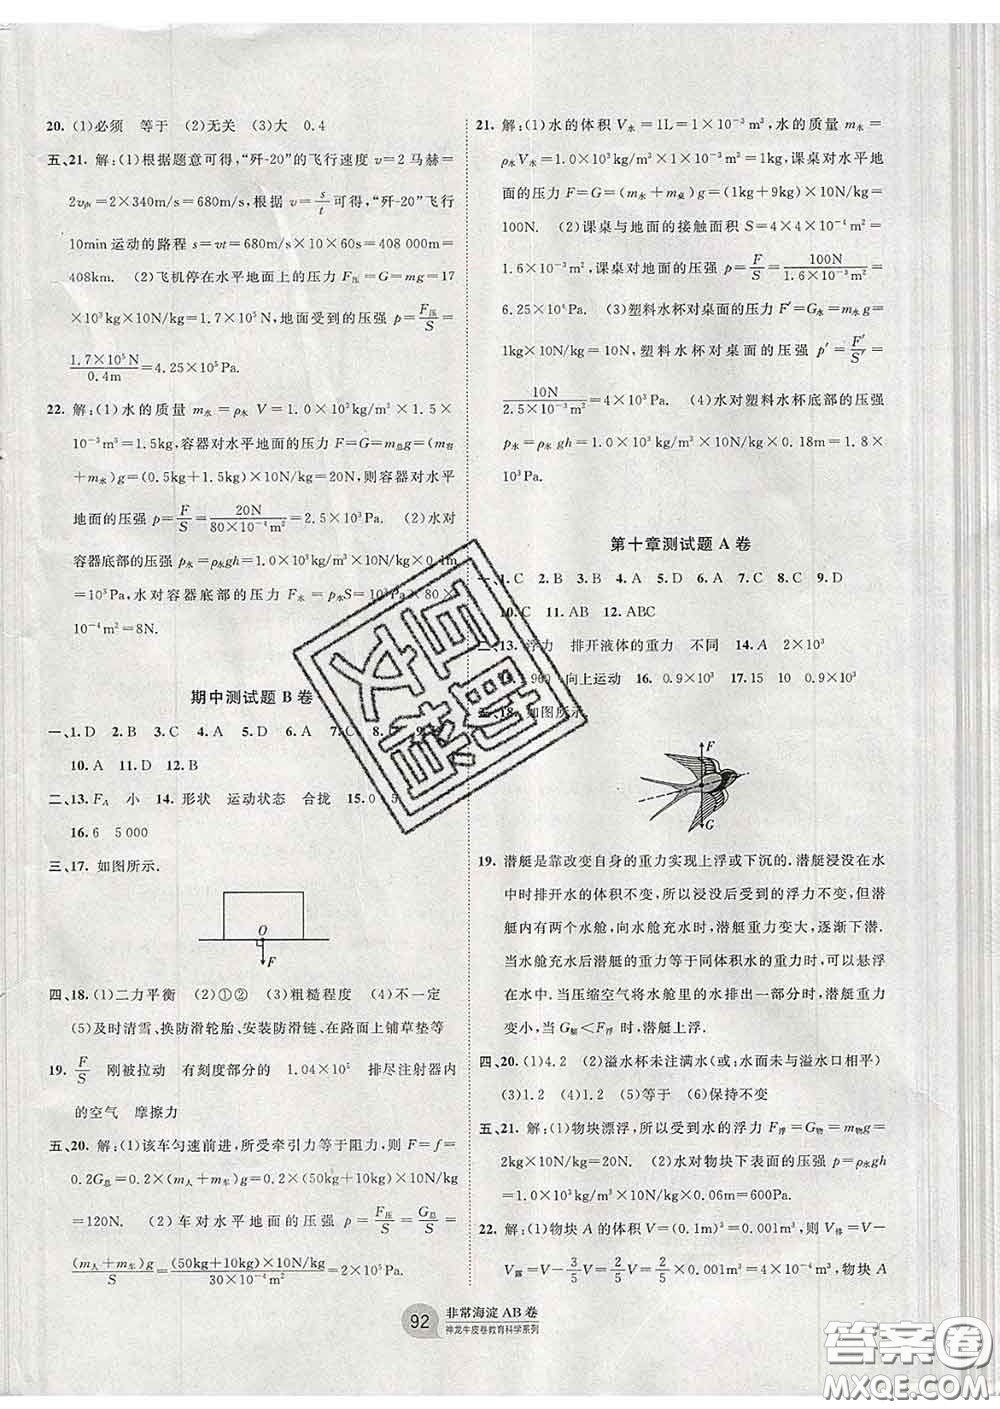 20. (1)必须 等于 (2)无关 (3)大 0.4
五、21. 解:(1)根据题意可得,“歼-20”的飞行速度 v=2 马赫=
2v声=2×340m/s=680m/s,根据 v=s/t可得,“歼-20”飞行
10min 运动的路程 s=vt=680m/s×10×60s=408 000m=
408km. (2)飞机停在水平地面上的压力 F压=G=mg=17
×10³kg×10N/kg=1.7×10⁵N,地面受到的压强 p=F压/S=
1.7×10⁵N/0.4m=4.25×10⁵Pa.
22. 解:(1)水的质量 m水=ρ水 V=1.0×10³kg/m³×1.5×
10⁻³m³=1.5kg,容器对水平地面的压力 F=G=m总g=(m容
+m水)g=(0.5kg+1.5kg)×10N/kg=20N,则容器对水平
地面的压强 p=F/S=20N/80×10⁻⁴m²=2.5×10³Pa. (2)水对
容器底部的压强 p水=ρ水gh=1.0×10³kg/m³×10N/kg×0.1m
=10³Pa,水对容器底部的压力 F水=p水S=10³Pa×80×
10⁻⁴m²=8N.
期中测试题 B 卷
一、1.D 2.B 3.C 4.A 5.D 6.A 7.C 8.
10.A 11.D 12.B
二、13. F_A 小 14. 形状 运动状态 合拢 15. 0 5
16. 6 5 000
三、17. 如图所示.
O
F
四、18. (1)二力平衡 (2)①② (3)粗糙程度 (4)不一定
(5)及时清雪、换防滑轮胎、安装防滑链、在路面上铺草垫等
19. F/S 刚被拉动 有刻度部分的长 1.04×10⁵ 排尽注射器内
的空气 摩擦力
五、20. 解:(1)该车匀速前进,所受牵引力等于阻力,则 F=f=
0.2G总=0.2×(m人+m车)g=0.2×(50kg+10kg)×10N/kg
=120N. (2)车对水平地面的压强 p=F压/S=G总/S=
(m人+m车)g/S=(50kg+10kg)×10N/kg/30×10⁻⁴m²=2×10⁵Pa.
21. 解:(1)水的体积 V水=1L=1×10⁻³m³,水的质量 m水=
ρ水V水=1.0×10³kg/m³×1×10⁻³m³=1kg,课桌对水平地
面的压力 F=G=(m水+m桌)g=(1kg+9kg)×10N/kg=
100N. (2)课桌与地面的接触面积 S=4×4×10⁻⁴m²=
1.6×10⁻³m²,课桌对地面的压强 p=F/S=100N/1.6×10⁻³m²=
6.25×10⁴Pa. (3)塑料水杯对桌面的压力 F′=G水=m水g=
1kg×10N/kg=10N,塑料水杯对桌面的压强 p′=F′/S′=
10N/2.5×10⁻³m²=4×10³Pa. (4)水对塑料水杯底部的压强
p水=ρ水 gh=1.0×10³kg/m³×10N/kg×0.18m=1.8×
10³Pa.
第十章测试题 A 卷
一、1.C 2.B 3.B 4.A 5.D 6.A 7.C 8.C 9.D
10.C 11.AB 12.ABC
二、13. 浮力 排开液体的重力 不同 14. A 2×10³
900 向上运动 16. 0.9×10³ 17. 15 10 0.9×10³
三、18. 如图所示
F
G
19. 潜艇是靠改变自身的重力实现上浮或下沉的.潜艇浸没在水
中时排开水的体积不变,所以浸没后受到的浮力不变,但潜
艇内有两个水舱,向水舱充水时,潜艇重力变大,逐渐下潜.
当水舱充水后潜艇的重力等于同体积水的重力时,可以悬浮
在水中.当压缩空气将水舱里的水排出一部分时,潜艇重力
变小,当 G艇<F浮 时,潜艇上浮.
四、20. (1)4.2 (2)溢水杯未注满水(或:水面未与溢水口相平)
(3)1.2 (4)1.2 (5)等于 (6)保持不变
五、21. 解:(1)物块漂浮,所以受到水的浮力 F浮=G物=m物g=
2kg×10N/kg=20N. (2)水对物块下表面的压强 p=ρ水gh
=1.0×10³kg/m³×10N/kg×0.06m=600Pa.
22. 解:(1)物块 A 的体积 V=(0.1m)³=0.001m³,则 V排=V−
V露=V−3/5V=2/5V=2/5×0.001m³=4×10⁻⁴m³,物块 A
92 非常海淀 AB 卷
神龙牛皮卷教育科学系列
答案卷
MXQE.COM